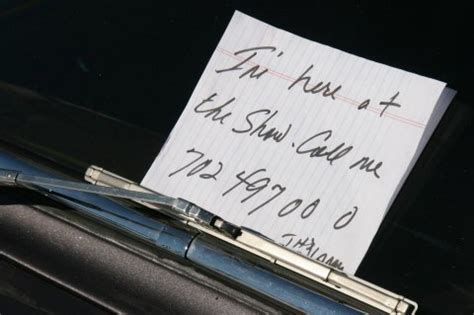 I'm here at
the Show. Call me
702 497 00 0